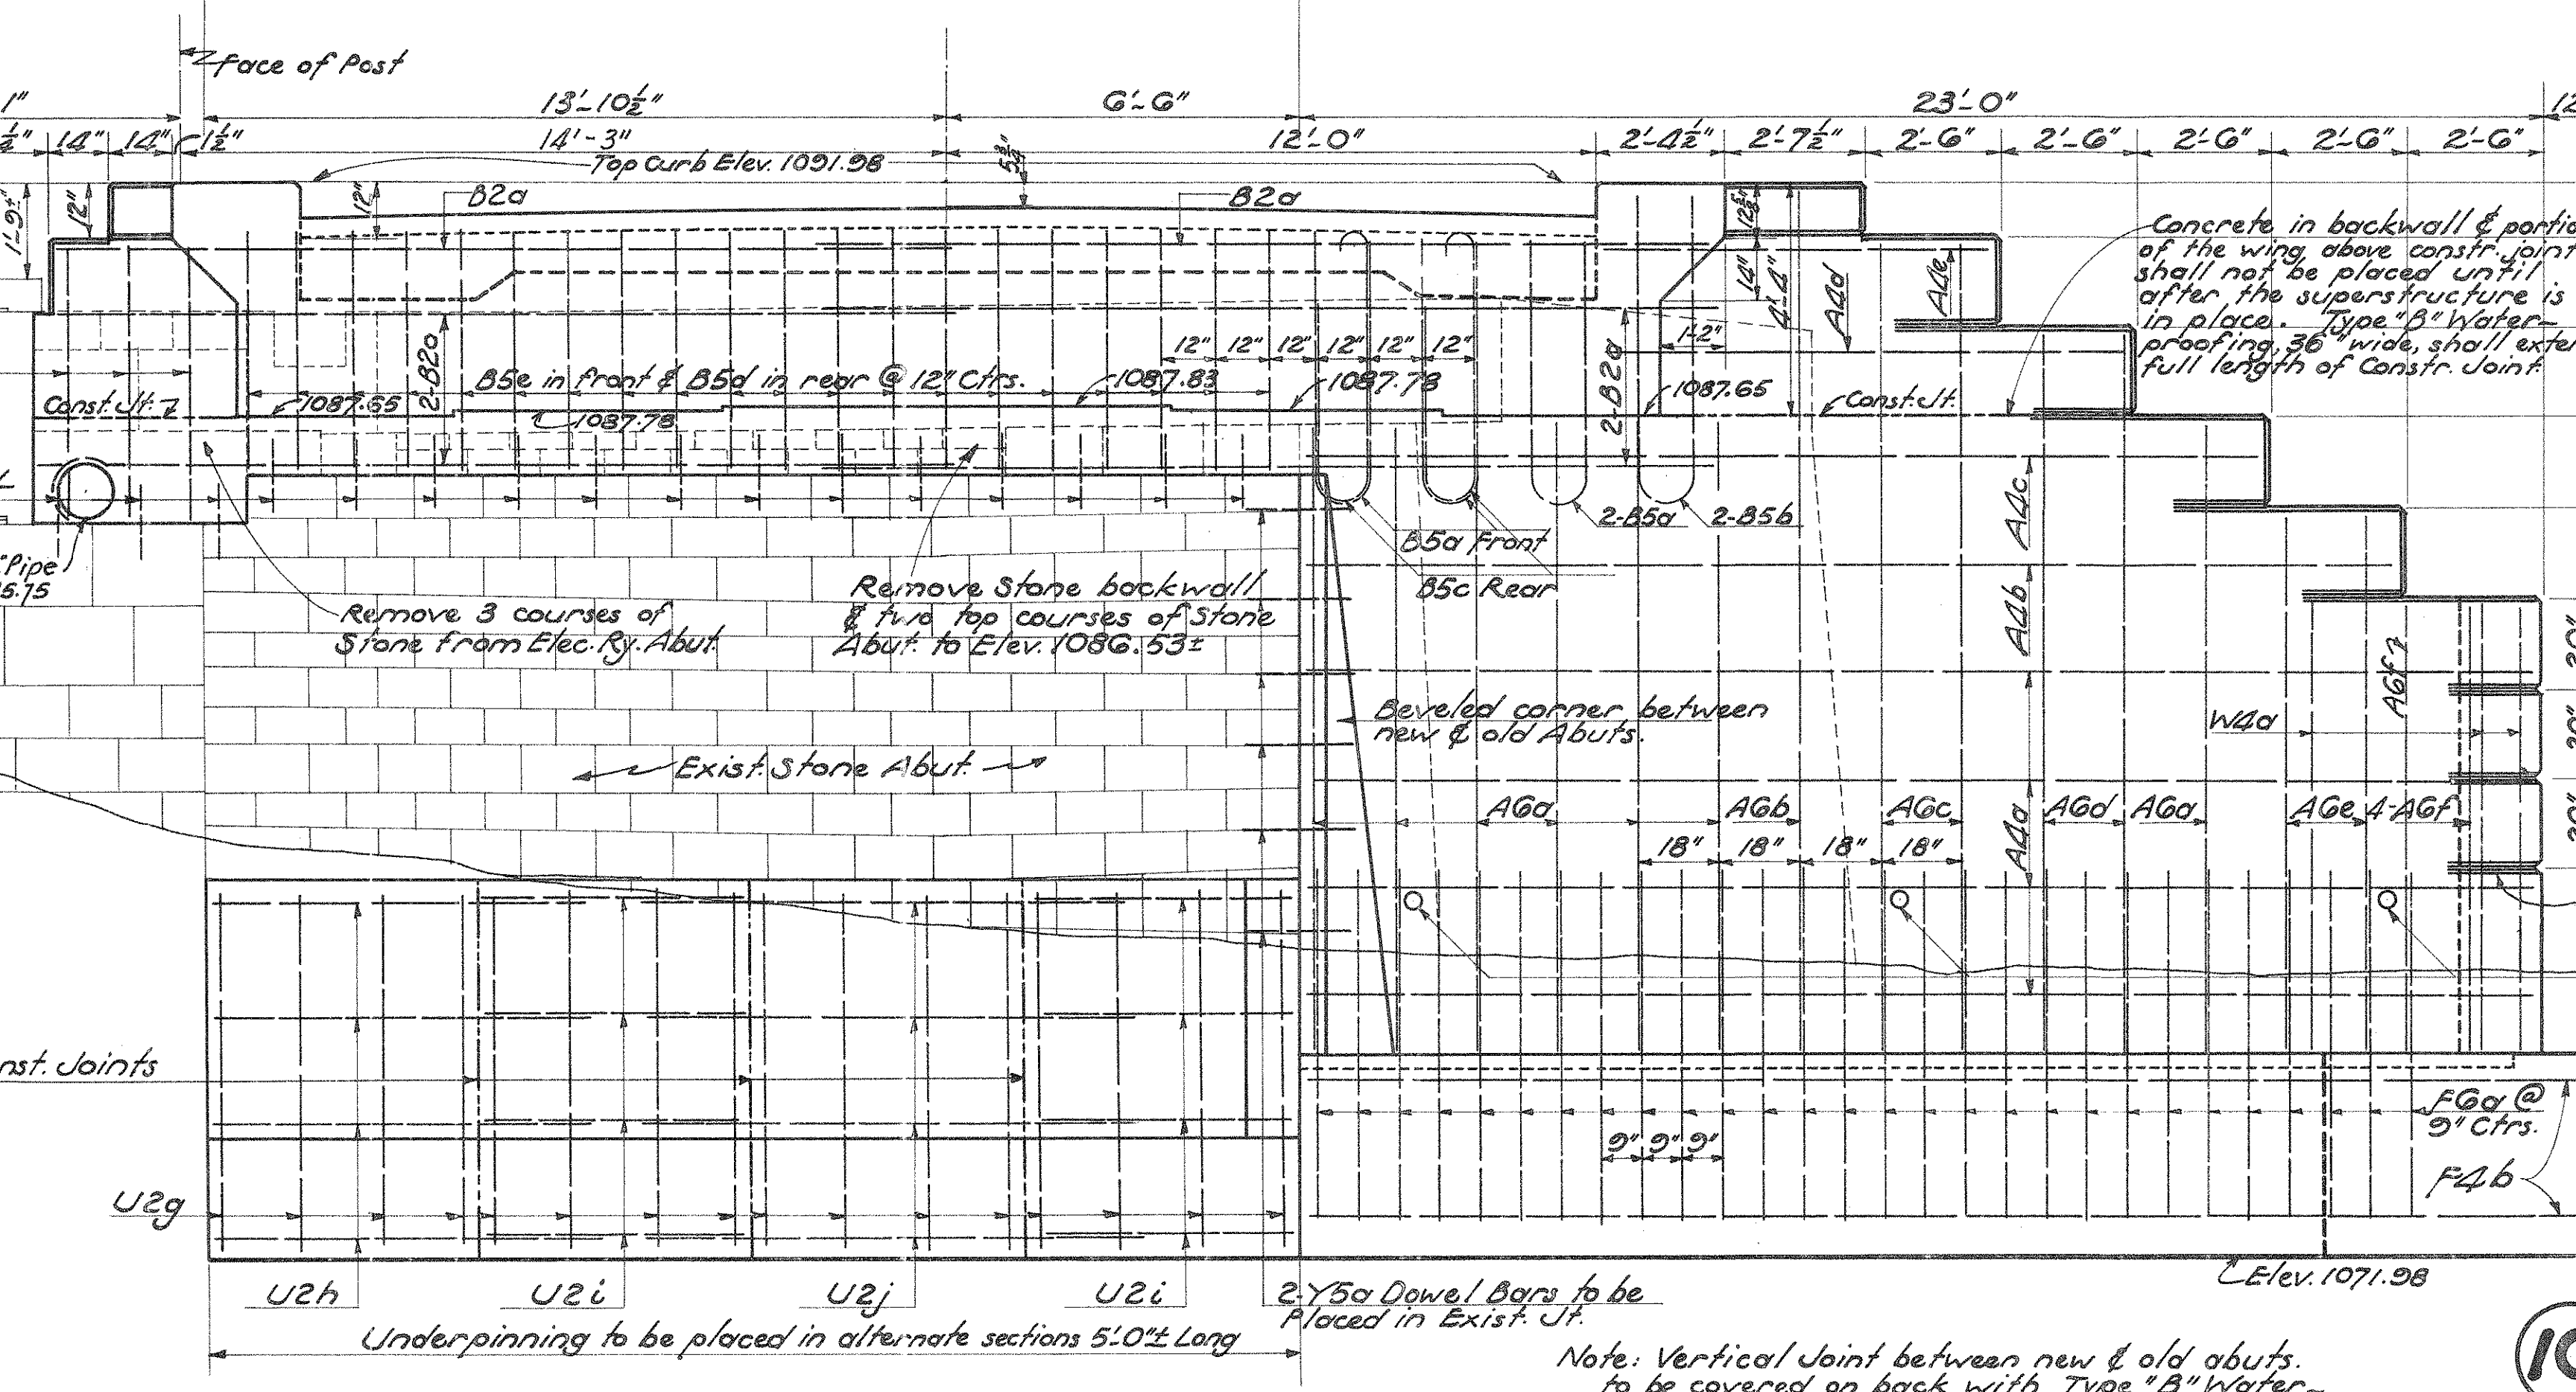 Face of Post
1"
13'-10½"
6'-6"
23'-0"
14"
14"
1½"
14'-3"
12'-0"
2'-4½"
2'-7½"
2'-6"
2'-6"
2'-6"
2'-6"
2'-6"
Top Curb Elev. 1091.98
12"
12"
B2a
B2a
14"
4'-4"
A4d
A4e
Concrete in backwall & portio
of the wing above constr. joint
shall not be placed until
after the superstructure is
in place. Type "B" Water-
proofing, 36" wide, shall exte
full length of Constr. Joint.
12"
12"
12"
12"
12"
12"
1'-2"
2-B2a
B5e in front & B5d in rear @ 12" Ctrs.
1087.83
1087.78
2-B2a
1087.65
Const. Jt.
Const. Jt.
1087.65
1087.78
2-B5a
2-B5b
A4c
B5a Front
B5c Rear
"Pipe
Remove 3 courses of
Stone from Elec. Ry. Abut.
Remove Stone backwall
& two top courses of Stone
Abut. to Elev. 1086.53±
A4b
A6f
20"
Beveled corner between
new & old Abuts.
W4a
20"
Exist. Stone Abut.
A6a
A6b
A6c
A6d
A6a
A6e
4-A6f
A4a
20"
18"
18"
18"
18"
nst. Joints
F6a @
9" Ctrs.
9"
9"
9"
F4b
U2g
Elev. 1071.98
U2h
U2i
U2j
U2i
2-Y5a Dowel Bars to be
Placed in Exist. Jt.
Underpinning to be placed in alternate sections 5'-0"± Long
Note: Vertical Joint between new & old abuts.
to be covered on back with Type "B" Water-